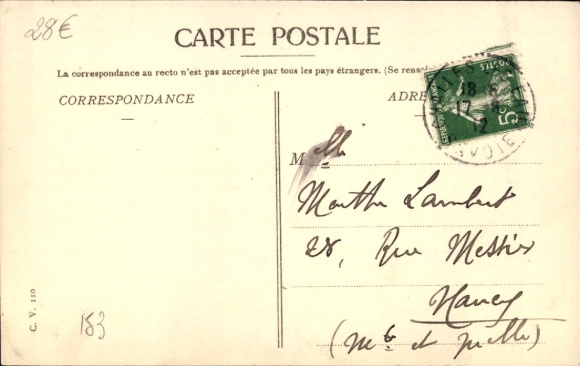 28€
CARTE POSTALE
La correspondance au recto n'est pas acceptée par tous les pays étrangers. (Se rense
CORRESPONDANCE
ADRE
POSTES
5c
18
17 - 8
12
Mlle
Marthe Lambert
28, Rue Messier
Nancy
(Mthe et Melle)
C. V. 110
183